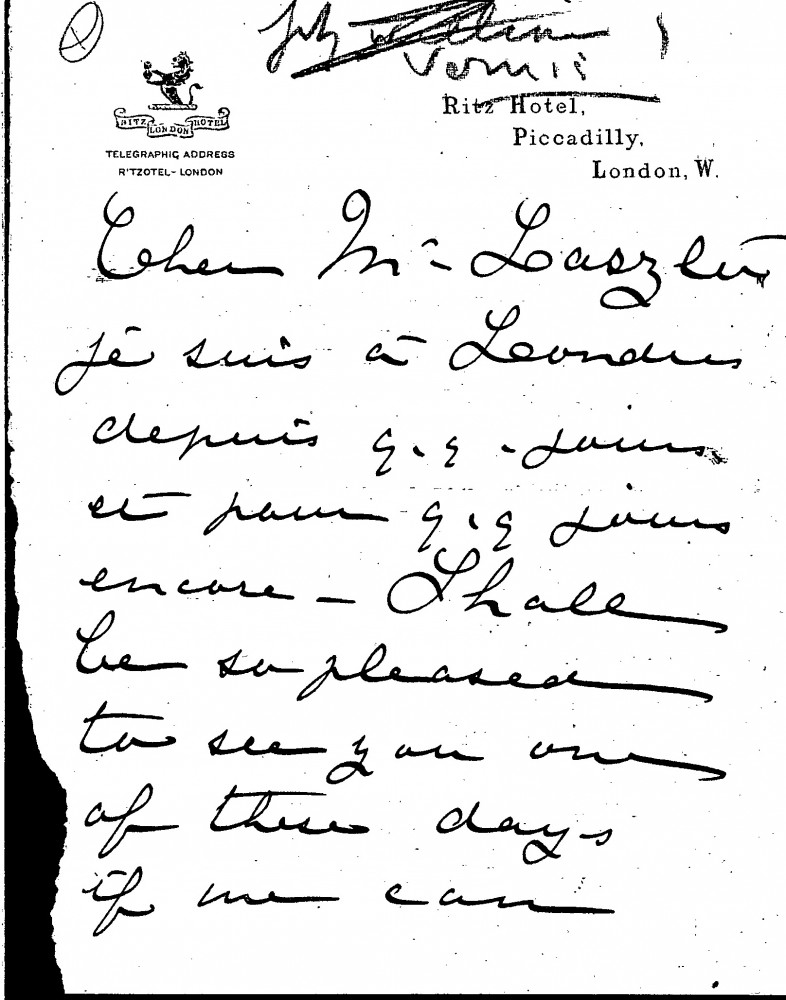 Vernis
RITZ HOTEL
LONDON
TELEGRAPHIC ADDRESS
R'TZOTEL-LONDON
Ritz Hotel,
Piccadilly,
London, W.
Cher Mr - Laszlo
je suis à Londres
depuis q.q. jours
et pour q.q jours
encore - Shall
be so pleased
to see you one
of these days
if we can